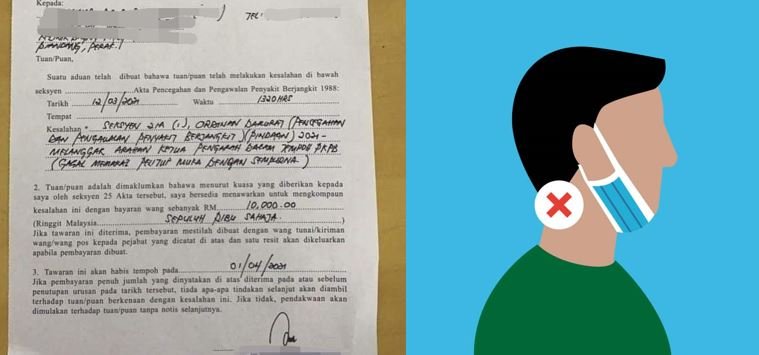 Kepada:
TEL:
, PERAK.
Tuan/Puan,
Suatu aduan telah dibuat bahawa tuan/puan telah melakukan kesalahan di bawah
seksyen Akta Pencegahan dan Pengawalan Penyakit Berjangkit 1988:
Tarikh 12/03/2021 Waktu 1320HRS
Tempat
Kesalahan SEKSYEN 21A (1), ORDINAN DARURAT (PENCEGAHAN
DAN PENGAWALAN PENYAKIT BERJANGKIT)(PINDAAN) 2021-
MELANGGAR ARAHAN KETUA PENGARAH DALAM TEMPOH PKPB
(GAGAL MEMAKAI PELITUP MUKA DENGAN SEMPURNA)
2. Tuan/puan adalah dimaklumkan bahawa menurut kuasa yang diberikan kepada
saya oleh seksyen 25 Akta tersebut, saya bersedia menawarkan untuk mengkompaun
kesalahan ini dengan bayaran wang sebanyak RM 10,000.00
(Ringgit Malaysia SEPULUH RIBU SAHAJA.)
Jika tawaran ini diterima, pembayaran mestilah dibuat dengan wang tunai/kiriman
wang/wang pos kepada pejabat yang dicatat di atas dan satu resit akan dikeluarkan
apabila pembayaran dibuat.
3. Tawaran ini akan habis tempoh pada 01/04/2021
Jika pembayaran penuh jumlah yang dinyatakan di atas diterima pada atau sebelum
penutupan urusan pada tarikh tersebut, tiada apa-apa tindakan selanjut akan diambil
terhadap tuan/puan berkenaan dengan kesalahan ini. Jika tidak, pendakwaan akan
dimulakan terhadap tuan/puan tanpa notis selanjutnya.